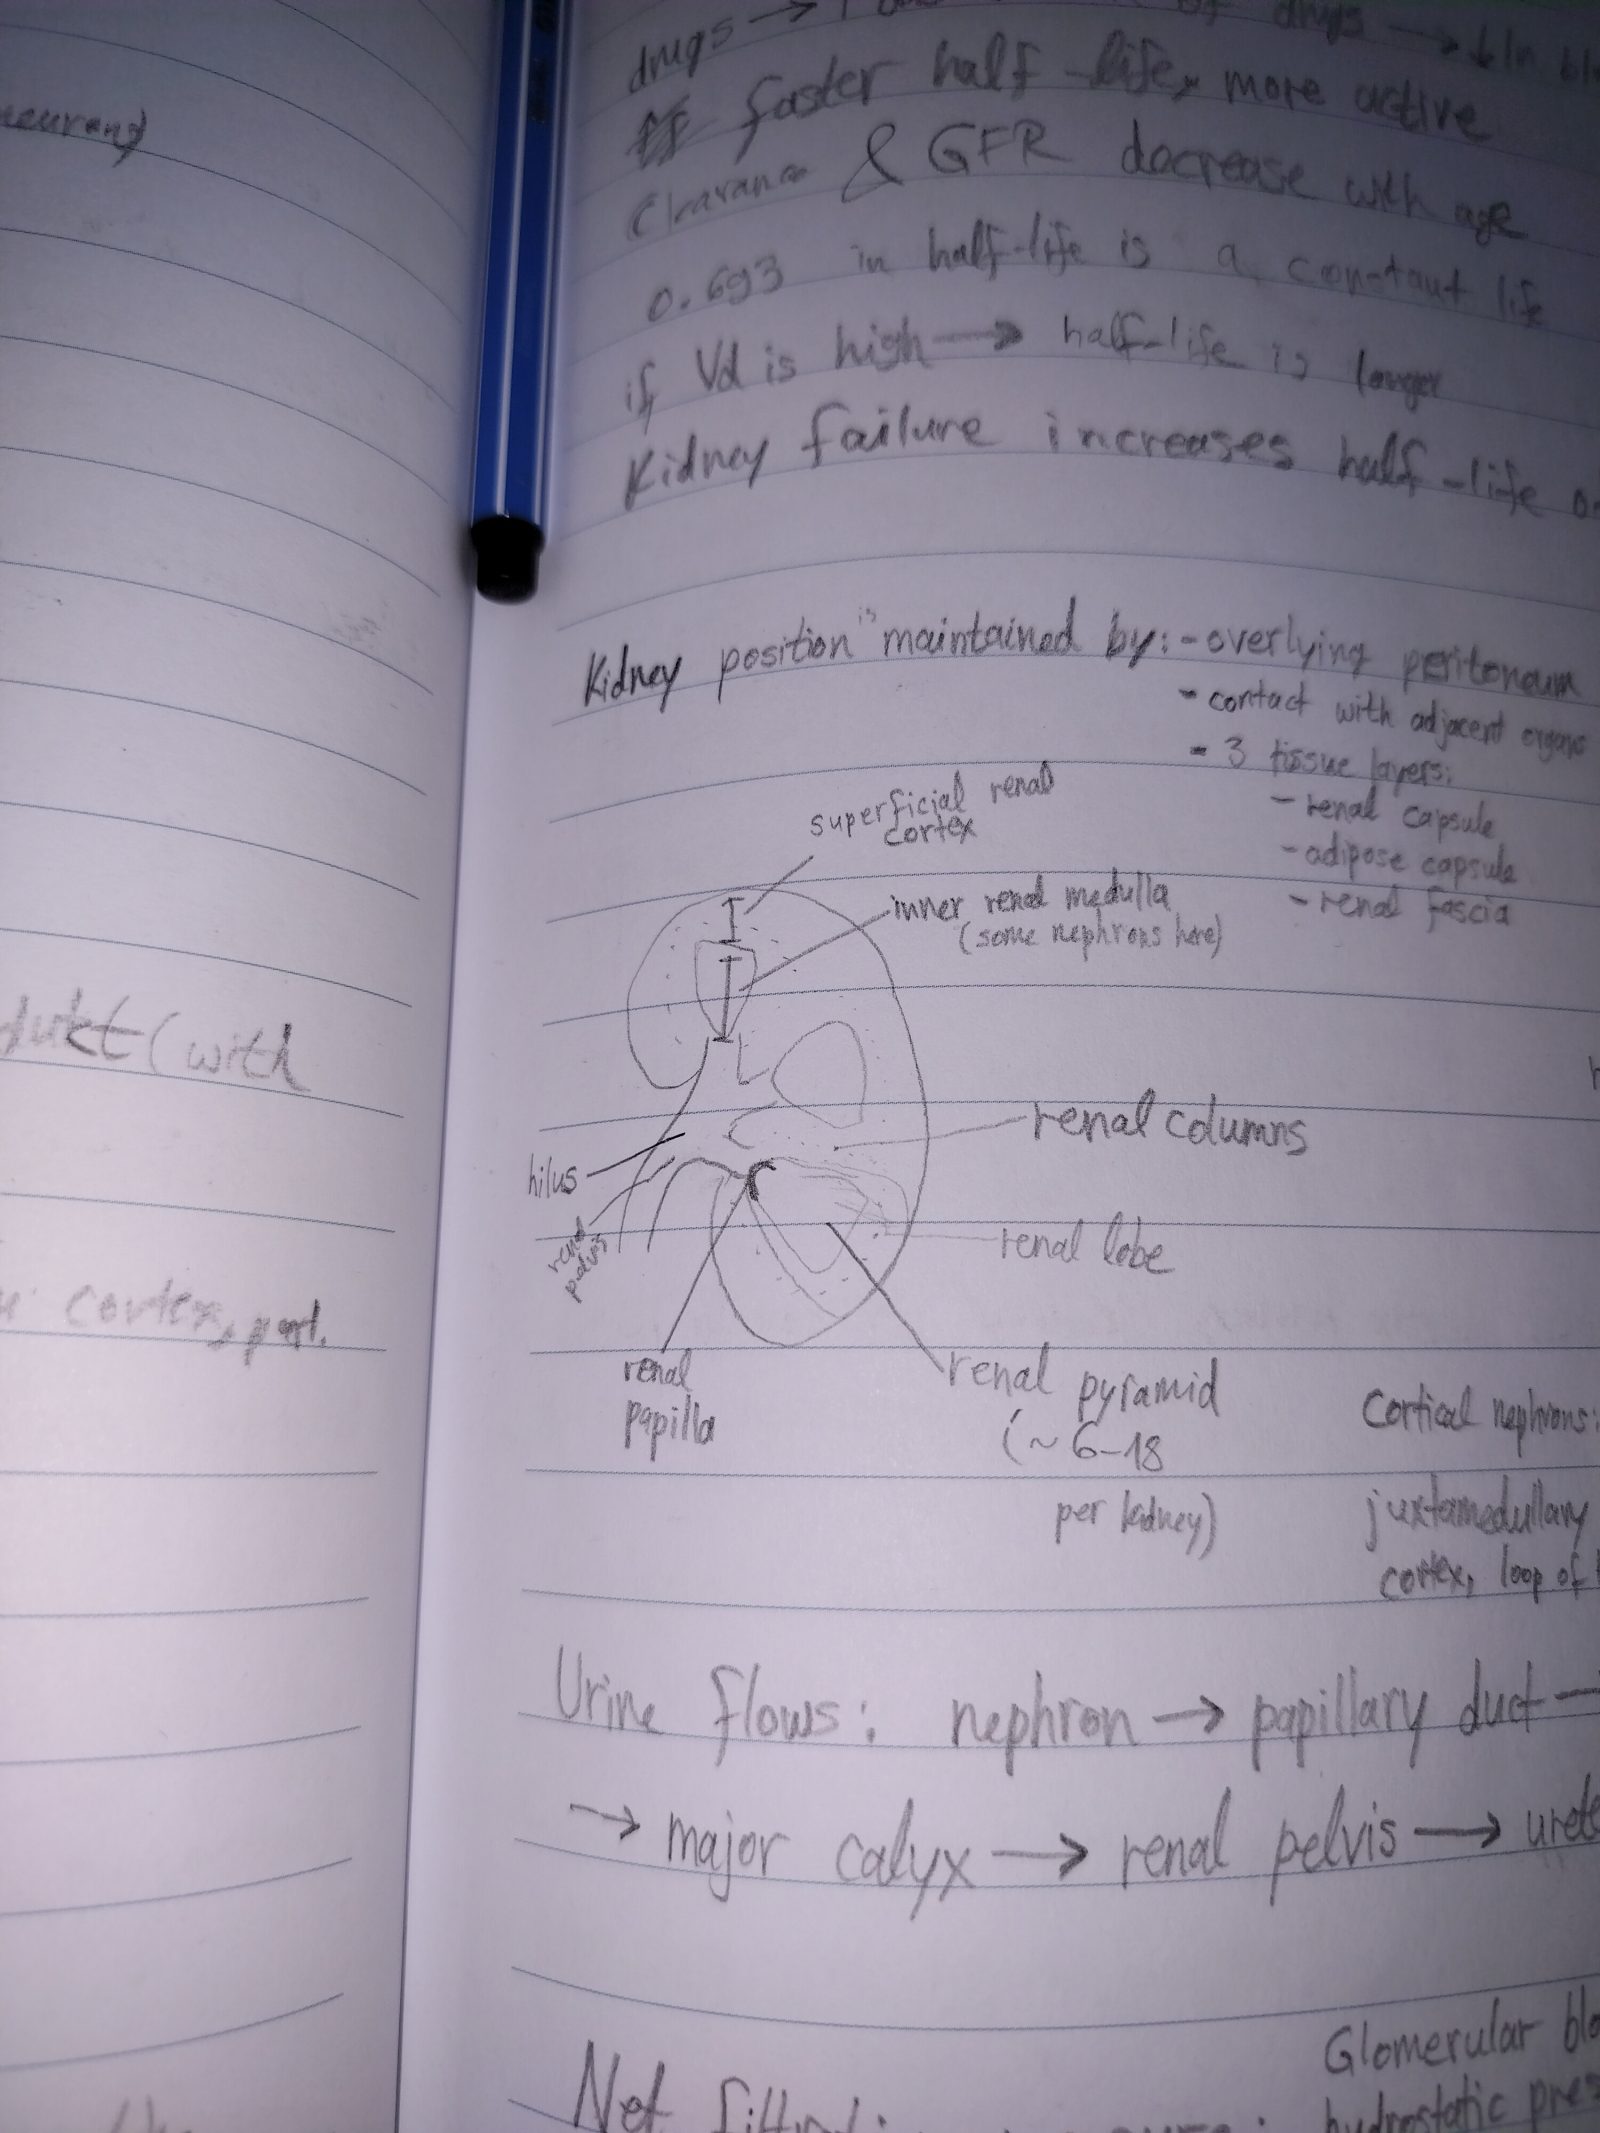 neurons)
dukt (with
cortex, part.
drugs → of drugs → ↓ In
faster half-life, more active
Clearance & GFR decrease with age
0.693 in half-life is a constant life
if Vd is high → half-life is longer
Kidney failure increases half-life
Kidney position is maintained by: - overlying peritoneum
- contact with adjacent organs
- 3 tissue layers:
- renal capsule
- adipose capsule
- renal fascia
superficial renal
cortex
inner renal medulla
(some nephrons here)
renal columns
hilus
renal
pelvis
renal lobe
renal
papilla
renal pyramid
(~ 6-18
per kidney)
Cortical nephrons:
juxtamedullary
cortex, loop of
Urine flows: nephron → papillary duct →
→ major calyx → renal pelvis →
Glomerular
Net
hydrostatic